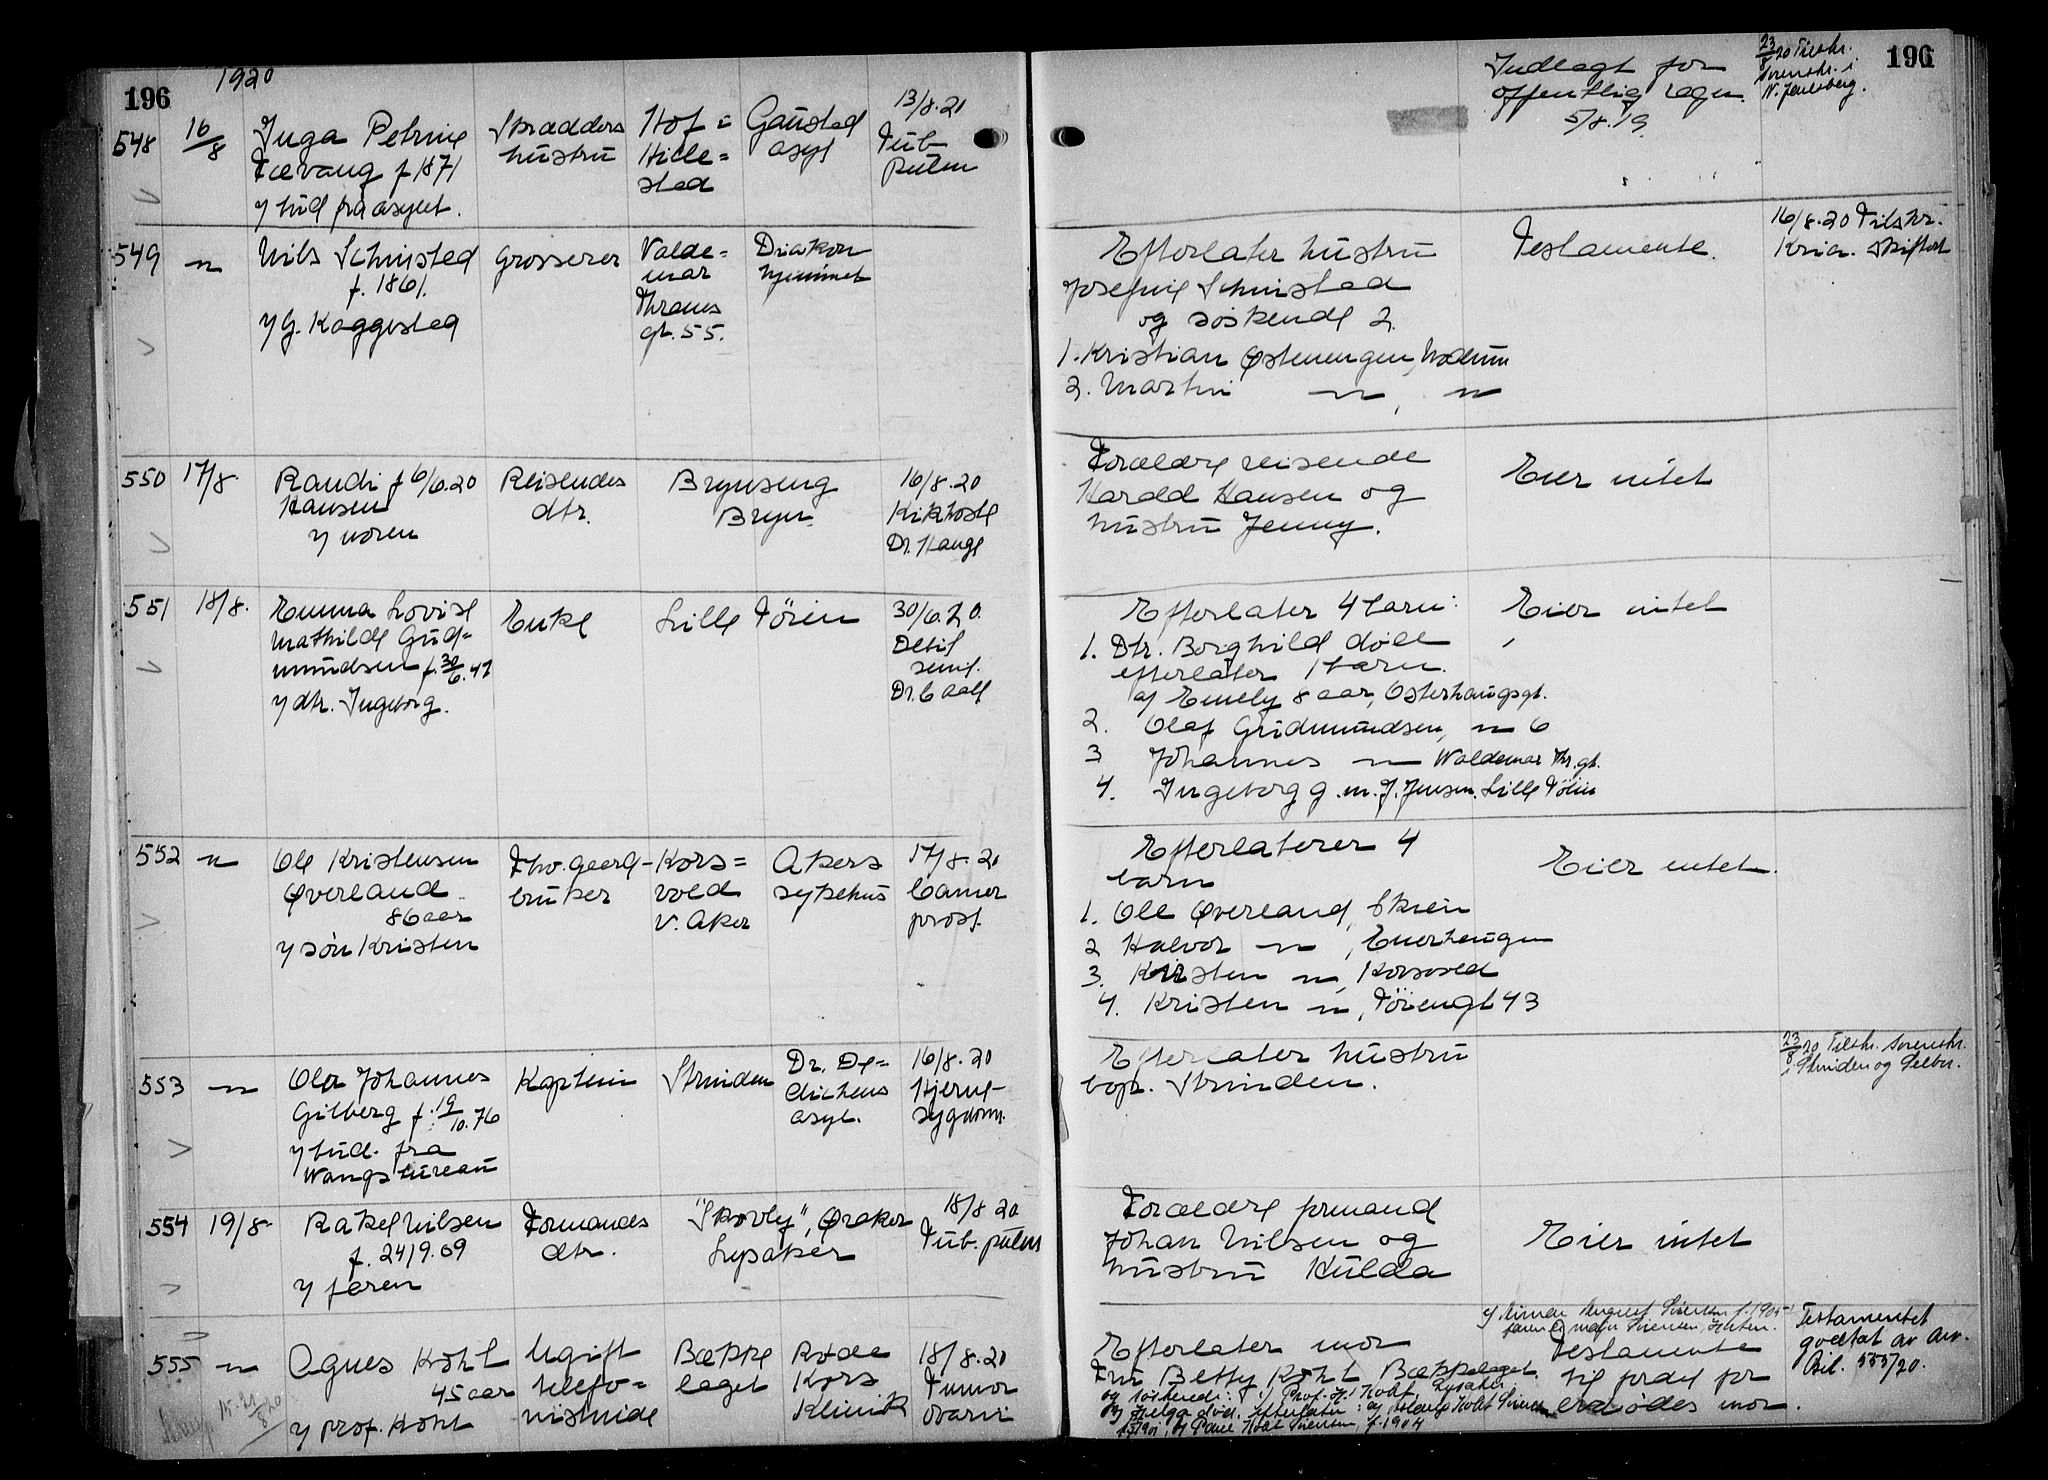 196
1920
548
16/8
Inga Petrine
Fævang f 1871
v/ bud fra asylet.
Skrædders
hustru
Hof i
Hille=
stad
Gausted
asyl
13/8.20
Tub.
pulm
549
"
Nils Schinsted
f. 1861.
v/ G. Koggested
Grosserer
Valde=
mar
Thranes
gt. 55.
Diakon
hjemmet
550
17/8.
Randi f 6/6.20
Hansen
v/ moren
Reisendes
dtr.
Brynseng
Bryn
16/8.20
Kikhoste
Dr. Hauge
551
18/8.
Emma Lovise
Mathilde Gud=
mundsen f. 30/6.47
v/ dtr. Ingeborg.
Enke
Lille Töien
30/6.20.
Debil
senil.
Dr. Caall
552
"
Ole Kristensen
Øverland
86 aar
v/ søn Kristen
Fhv. gaard-
bruker
Kors=
vold
V. Aker
Akers
sykehus
17/8.20
Cancer
prost.
553
"
Ola Johannes
Gilberg f. 19/10.76
v/ bud. fra
Wangs bureau
Kaptein
Strinden
Dr. De=
dichens
asyl.
16/8.20
Hjerne-
sygdom.
554
19/8
Rakel Nilsen
f. 24/9.09
v/ faren
Formands
dtr.
"Skovly", Øraker
Lysaker
18/8 20
Tub. pulm
555
"
Agnes Kobl
45 aar
v/ prof. Koht
Ugift
telefo=
nistinde
Bække
laget
Røde
Kors
Klinik
18/8.20
Tumor
ovarii
196
Indlagt for
offentlig regn.
5/8.19.
23/8 20 Tilskr.
Sorenskr. i
N. Jarlsberg.
Efterlater hustru
Josefine Schinsted
og søskende 2
1. Kristian Østenengen, Modum
2. Martin " , "
Testamente.
16/8.20 Tilskr.
Kria. Skifteret
Forældre reisende
Harald Hansen og
hustru Jenny.
Eier intet
Efterlater 4 barn:
1. Dtr. Borghild död
efterlater 1 barn.
a/ Emely 8 aar, Osterhausgt.
2. Olaf Gudmundsen, " 6
3 Johannes " Waldemar Thr.gt.
4. Ingeborg g.m. J. Jensen, Lille Töien
Eier intet
Efterlaterer 4
barn
1. Ole Øverland, Skien
2 Halvor " , Enerhaugen
3. Kirsten ", Korsvold
4. Kristen ", Töiengt 43
Eier intet.
Efterlater hustru
bopl. Strinden.
23/8 20 Tilskr. Sorenskr.
i Strinden og Selbu.
Forældre formand
Johan Nilsen og
hustru Hulda
Eier intet
Efterlater mor
Fru Betty Koht Bækkelaget
og søskende: 1) Prof. H. Koht, Lysaker
2) Helga død. Efterlater: a) Helge Koht Sörensen
f. 1901, b) Paul Koht Sörensen, f. 1904
c/ Einar August Sörensen f. 1905
faren er major Sörensen, Horten.
Testamente
til fordel for
avdødes mor.
Testamentet
godtat av arv.
Bil. 555/20.